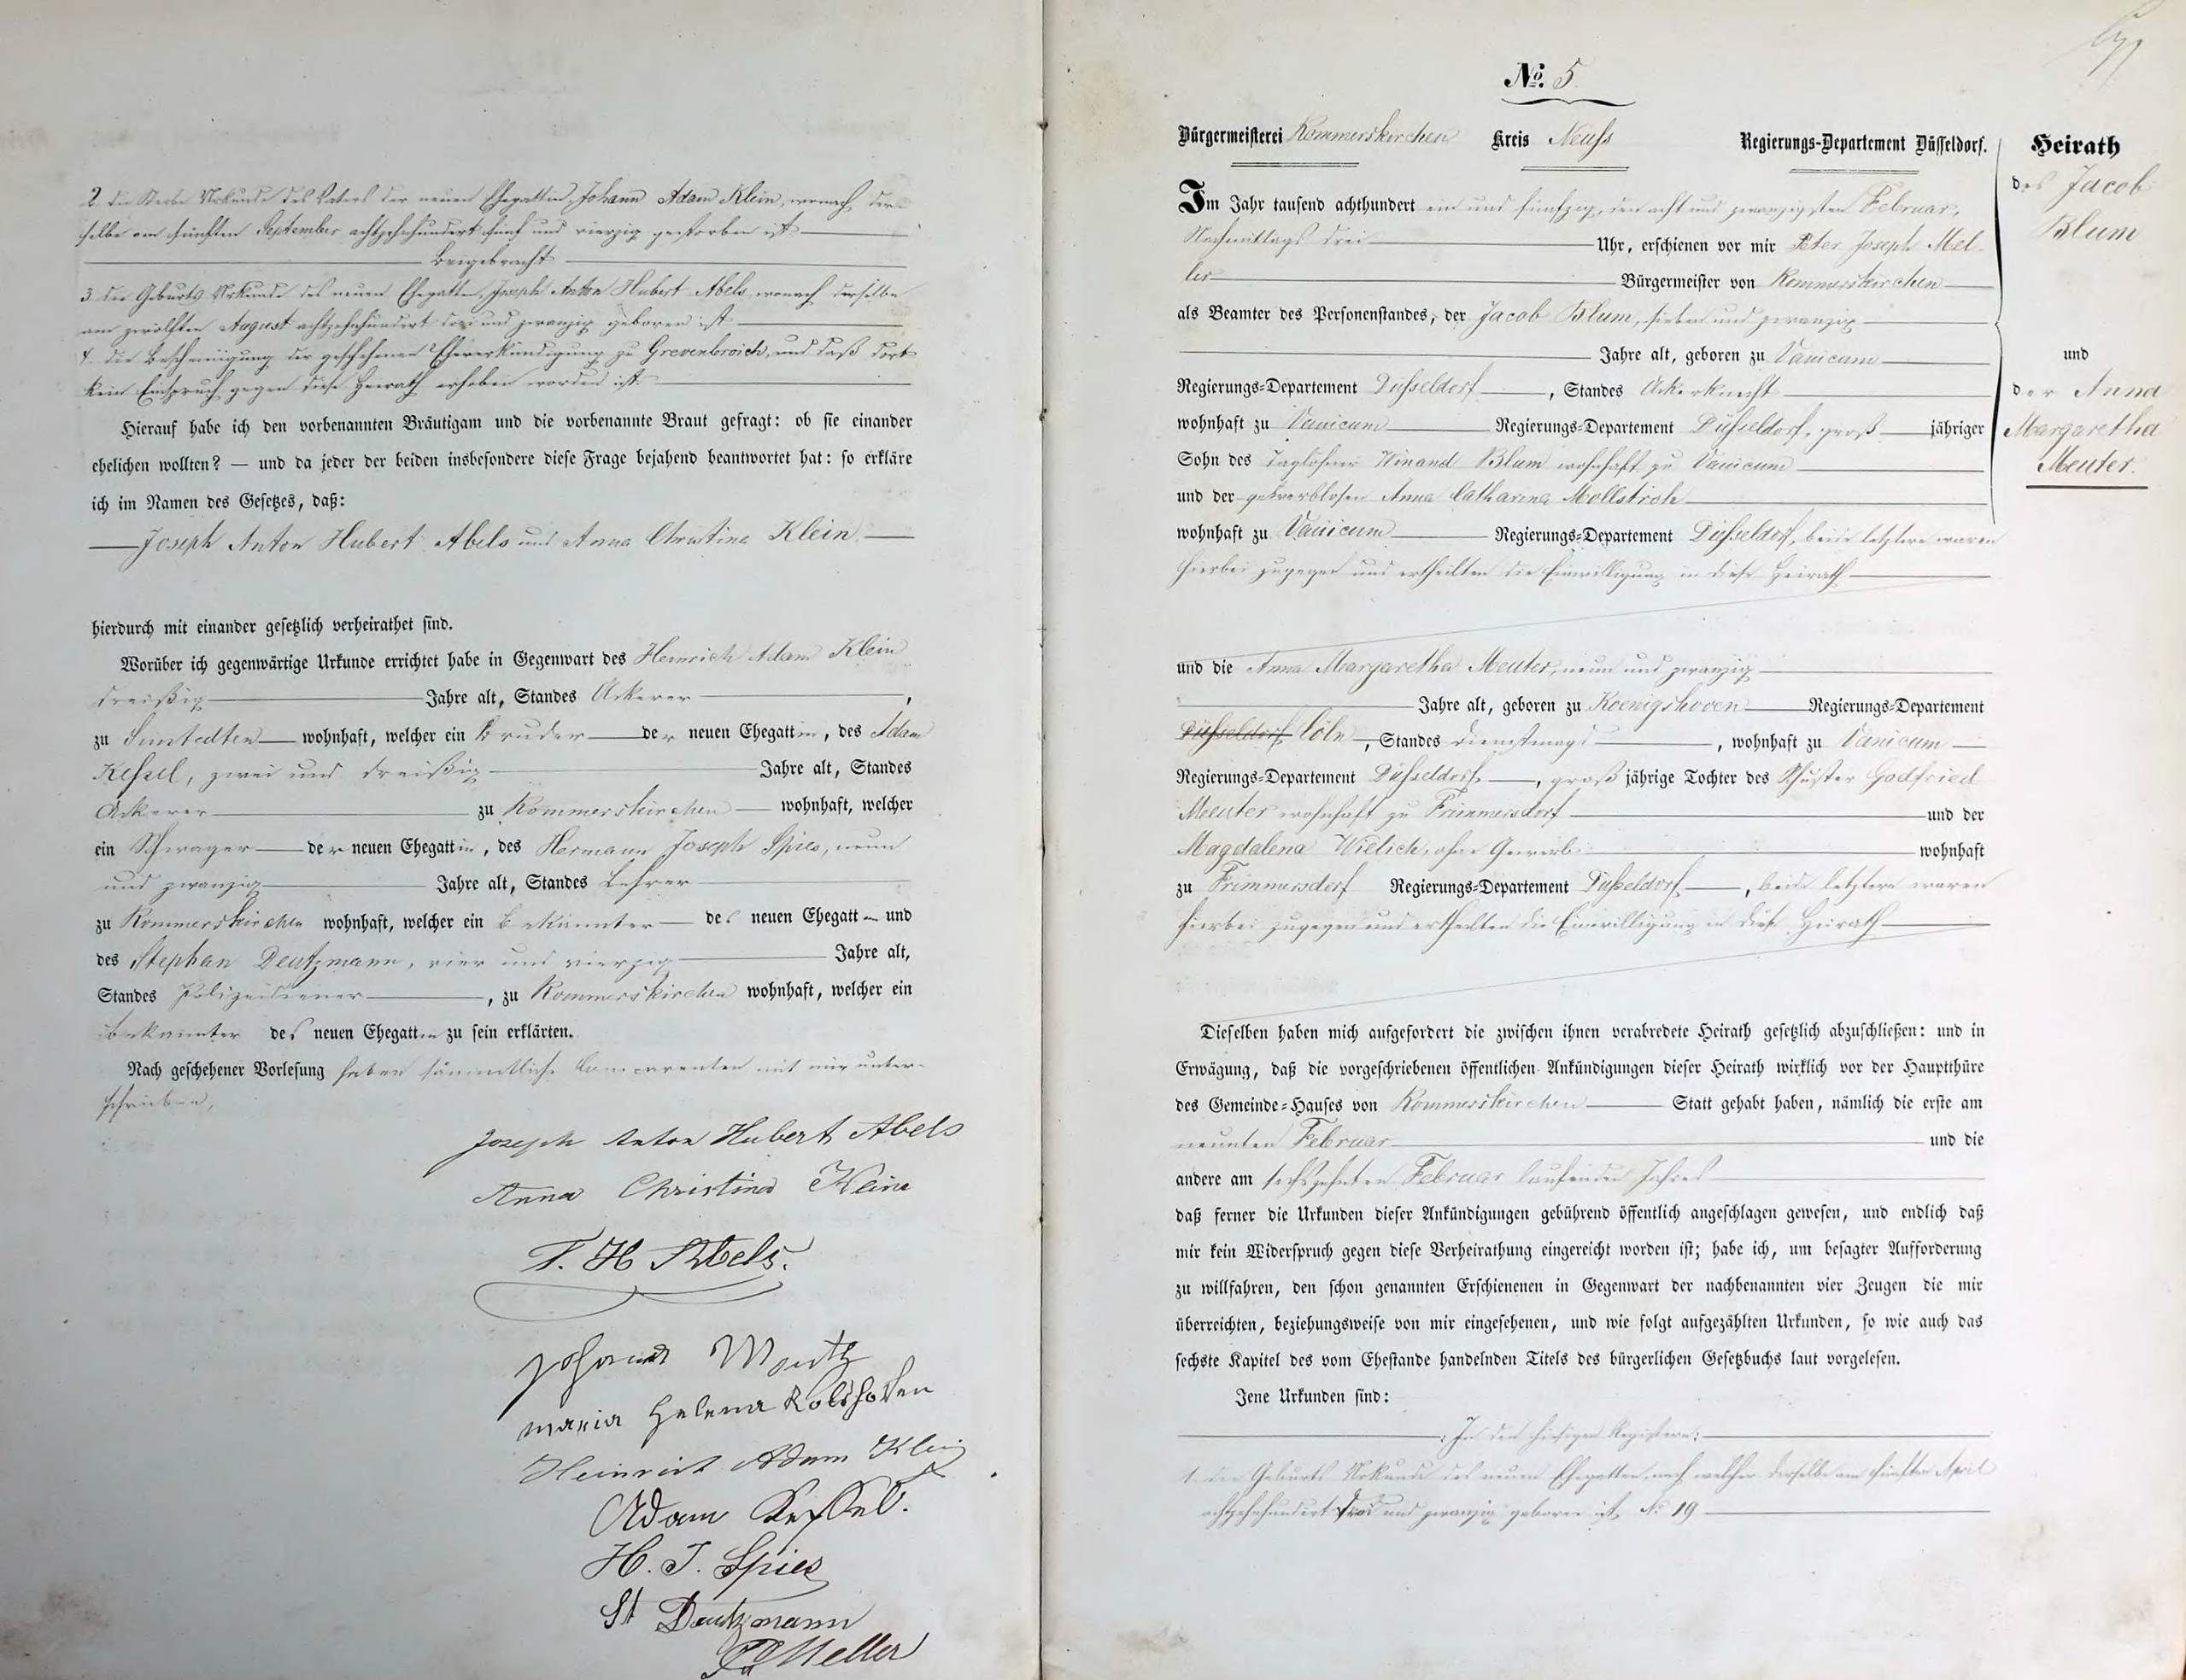 2. die Sterbe Urkunde des Vaters der neuen Ehegattin, Johann Adam Klein, wonach der-
selbe am fünften September achtzehnhundert fünf und vierzig gestorben ist
Beigebracht
3. die Geburts Urkunde des neuen Ehegatten, Joseph Anton Hubert Abels, wonach derselbe
am zwölften August achtzehnhundert drei und zwanzig geboren ist
4. die Bescheinigung der geschehenen Eheverkündigung zu Grevenbroich, und daß dort
kein Einspruch gegen diese Heirath erhoben worden ist.
Hierauf habe ich den vorbenannten Bräutigam und die vorbenannte Braut gefragt: ob sie einander
ehelichen wollten? — und da jeder der beiden insbesondere diese Frage bejahend beantwortet hat: so erkläre
ich im Namen des Gesetzes, daß:
Joseph Anton Hubert Abels und Anna Christina Klein
hierdurch mit einander gesetzlich verheirathet sind.
Worüber ich gegenwärtige Urkunde errichtet habe in Gegenwart des Heinrich Adam Klein
dreißig Jahre alt, Standes Ackerer,
zu Sinstedten wohnhaft, welcher ein Bruder der neuen Ehegattin, des Adam
Kessel, zwei und dreißig Jahre alt, Standes
Ackerer zu Rommerskirchen wohnhaft, welcher
ein Schwager der neuen Ehegattin, des Hermann Joseph Spies, neun
und zwanzig Jahre alt, Standes Lehrer
zu Rommerskirchen wohnhaft, welcher ein Bekannter des neuen Ehegatten und
des Stephan Deutzmann, vier und vierzig Jahre alt,
Standes Polizeidiener, zu Rommerskirchen wohnhaft, welcher ein
Bekannter des neuen Ehegatten zu sein erklärten.
Nach geschehener Vorlesung haben sämmtliche Comparenten mit mir unter-
schrieben,
Joseph Anton Hubert Abels
Anna Christina Klein
T. H Abels.
Johann
maria Helena Rolshoven
Heinrich Adam Klein
Adam Kessel.
H. J. Spies
St Deutzmann
PJ Meller
No. 5
Bürgermeisterei Rommerskirchen Kreis Neuß Regierungs-Departement Düsseldorf.
Im Jahr tausend achthundert ein und fünfzig, den acht und zwanzigsten Februar,
Nachmittags drei Uhr, erschienen vor mir Peter Joseph Mel-
ler Bürgermeister von Rommerskirchen
als Beamter des Personenstandes, der Jacob Blum, sieben und zwanzig
Jahre alt, geboren zu Vanicum
Regierungs-Departement Düsseldorf, Standes Ackerknecht
wohnhaft zu Vanicum Regierungs-Departement Düsseldorf, groß jähriger
Sohn des Taglöhner Winand Blum wohnhaft zu Vanicum
und der gewerblosen Anna Catharina Mollstroh
wohnhaft zu Vanicum Regierungs-Departement Düsseldorf, beide letztere waren
hierbei zugegen und ertheilten die Einwilligung in diese Heirath
und die Anna Margaretha Meuter, neun und zwanzig
Jahre alt, geboren zu Koenigshoven Regierungs-Departement
Düsseldorf Cöln, Standes Dienstmagd, wohnhaft zu Vanicum
Regierungs-Departement Düsseldorf, groß jährige Tochter des Schuster Godfried
Meuter wohnhaft zu Frimmersdorf und der
Magdalena Wielich, ohne Gewerb wohnhaft
zu Frimmersdorf Regierungs-Departement Düsseldorf, beide letztere waren
hierbei zugegen und ertheilten die Einwilligung in diese Heirath
Dieselben haben mich aufgefordert die zwischen ihnen verabredete Heirath gesetzlich abzuschließen: und in
Erwägung, daß die vorgeschriebenen öffentlichen Ankündigungen dieser Heirath wirklich vor der Hauptthüre
des Gemeinde-Hauses von Rommerskirchen Statt gehabt haben, nämlich die erste am
neunten Februar und die
andere am sechszehnten Februar laufenden Jahres
daß ferner die Urkunden dieser Ankündigungen gebührend öffentlich angeschlagen gewesen, und endlich daß
mir kein Widerspruch gegen diese Verheirathung eingereicht worden ist; habe ich, um besagter Aufforderung
zu willfahren, den schon genannten Erschienenen in Gegenwart der nachbenannten vier Zeugen die mir
überreichten, beziehungsweise von mir eingesehenen, und wie folgt aufgezählten Urkunden, so wie auch das
sechste Kapitel des vom Ehestande handelnden Titels des bürgerlichen Gesetzbuchs laut vorgelesen.
Jene Urkunden sind:
In den hiesigen Registern:
1. die Geburts Urkunde des neuen Ehegatten, nach welcher derselbe am fünften April
achtzehnhundert drei und zwanzig geboren ist, No 19
Heirath
des Jacob
Blum
und
der Anna
Margaretha
Meuter.